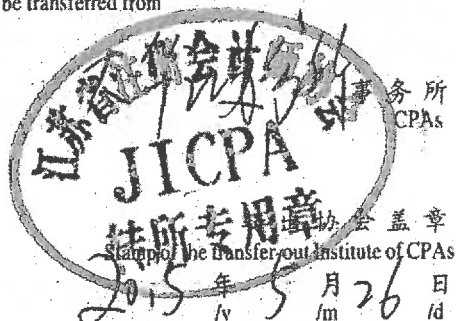 be transferred from
事务所
CPAs
江苏省注册会计师协会
JICPA
转所专用章
协会盖章
Stamp of the transfer-out Institute of CPAs
2015年5月26日
/y /m /d